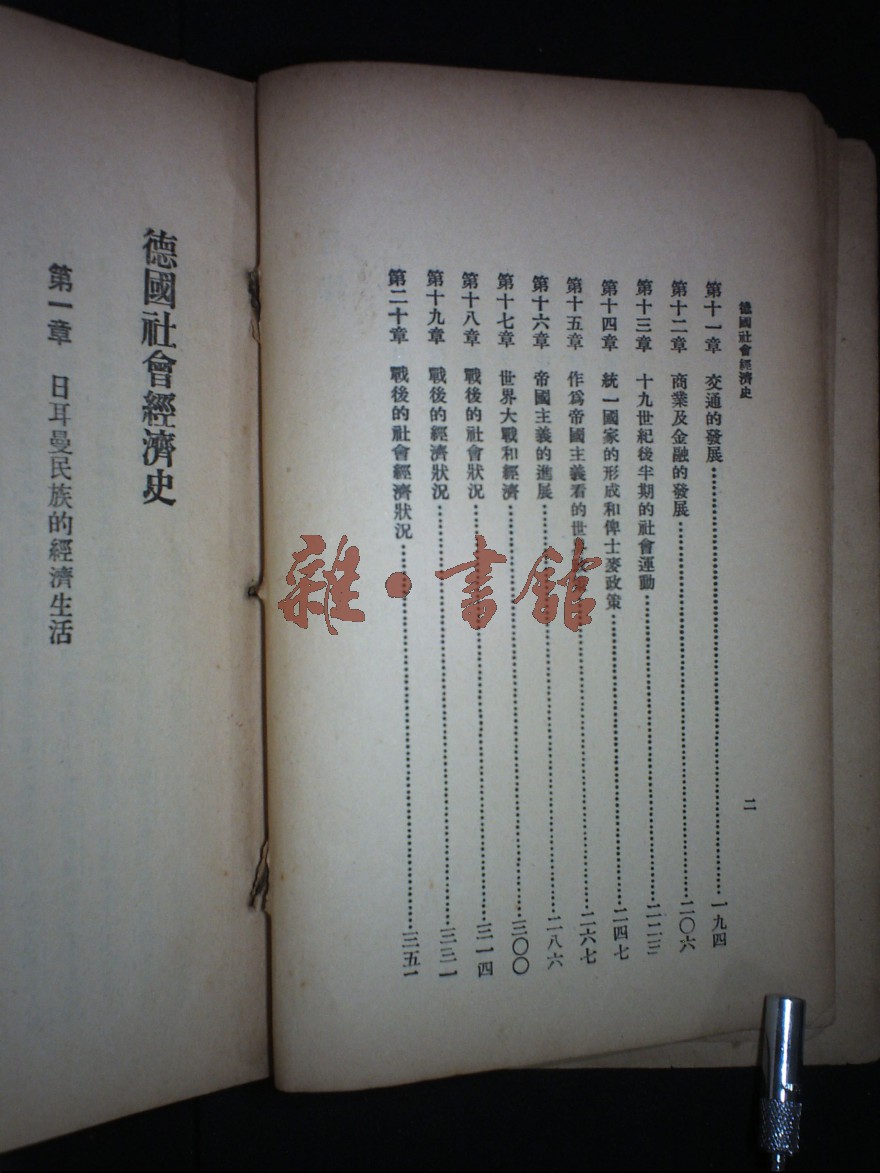 德國社會經濟史
二
第十一章 交通的發展……一九四
第十二章 商業及金融的發展……二〇六
第十三章 十九世紀後半期的社會運動……二二三
第十四章 統一國家的形成和俾士麥政策……二四七
第十五章 作爲帝國主義看的世……二六七
第十六章 帝國主義的進展……二八六
第十七章 世界大戰和經濟……三〇〇
第十八章 戰後的社會狀況……三一四
第十九章 戰後的經濟狀況……三三一
第二十章 戰後的社會經濟狀況……三五一
德國社會經濟史
第一章 日耳曼民族的經濟生活
雜·書館